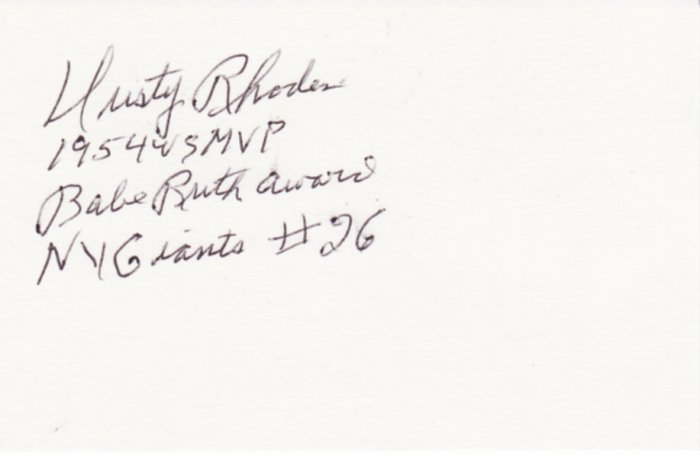 Dusty Rhodes
1954 WS MVP
Babe Ruth award
NY Giants #26